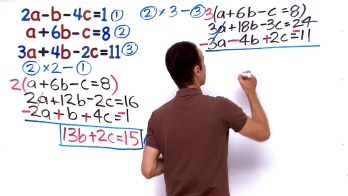 2a-b-4c=1 ①
a+6b-c=8 ②
3a+4b-2c=11 ③
②×2-①
2(a+6b-c=8)
2a+12b-2c=16
-2a+b+4c=-1
13b+2c=15
②×3-③
3(a+6b-c=8)
3a+18b-3c=24
-3a-4b+2c=-11